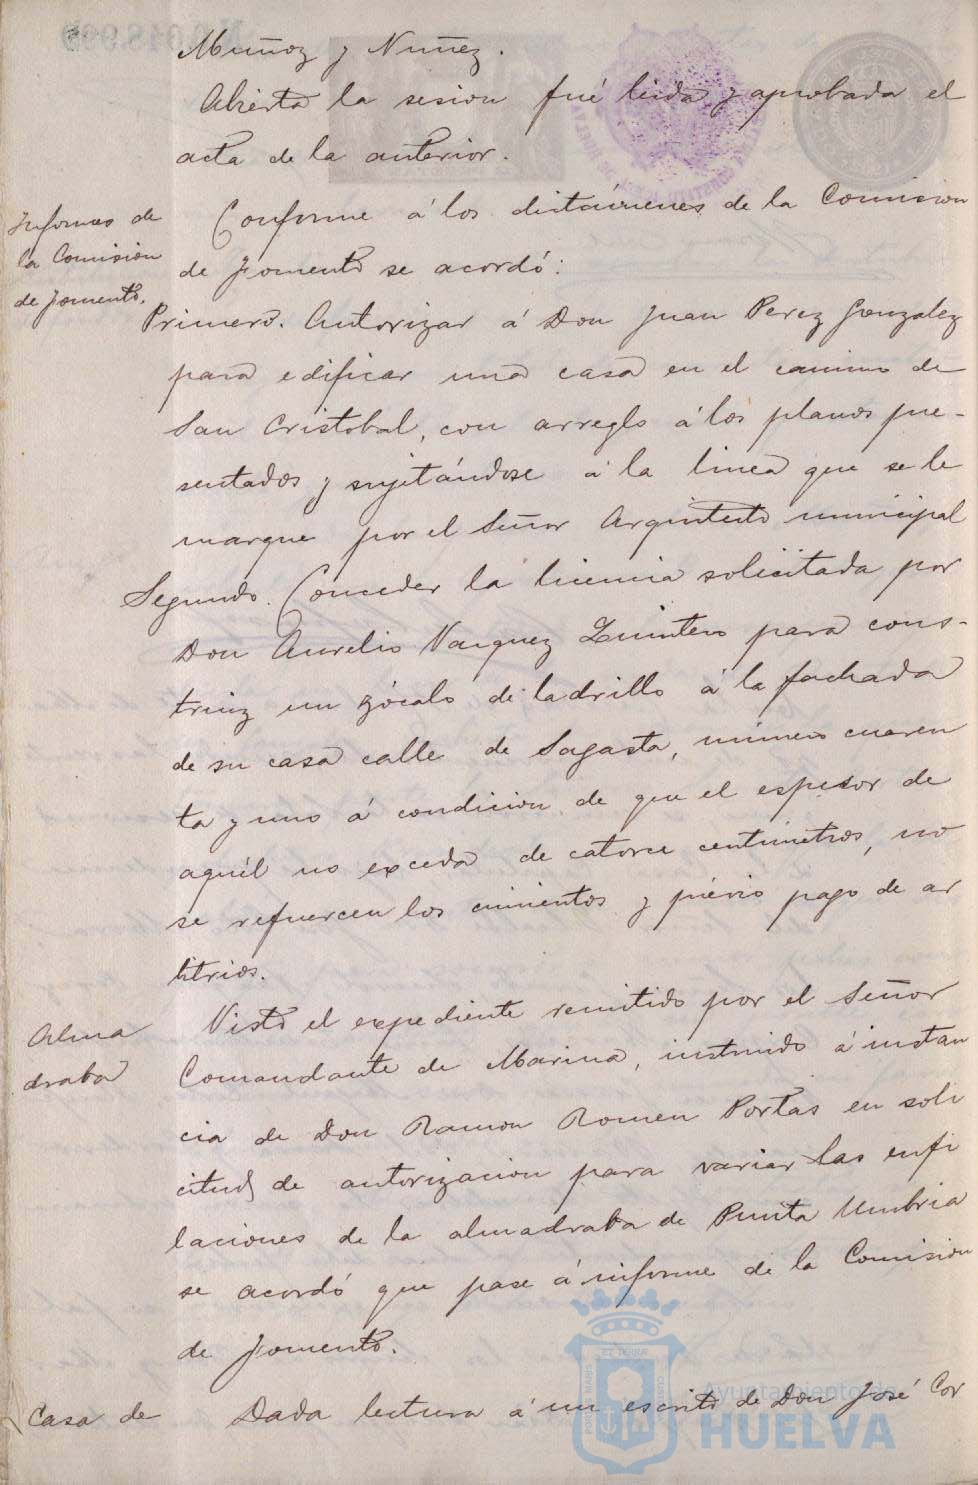 Muñoz y Nuñez.
Abierta la sesion fué leida y aprobada el
acta de la anterior.
Informes de
la Comision
de Fomento.
Conforme á los dictámenes de la Comision
de Fomento se acordó:
Primero. Autorizar á Don Juan Perez Gonzalez
para edificar una casa en el camino de
San Cristobal, con arreglo á los planos pre-
sentados y sujetándose á la linea que se le
marque por el Señor Arquitecto municipal
Segundo. Conceder la licencia solicitada por
Don Aurelio Vazquez Zuintero para cons-
truiz un zócalo de ladrillo á la fachada
de su casa calle de Sagasta, número cuaren
ta y uno á condicion de que el espesor de
aquél no exceda de catorce centimetros, no
se refuercen los cimientos y prévio pago de ar
bitrios.
Alma
draba
Visto el expediente remitido por el Señor
Comandante de Marina, instruido á instan
cia de Don Ramon Romeu Portas en soli
citud de autorizacion para variar las enfi
laciones de la almadraba de Punta Umbria
se acordó que pase á informe de la Comision
de Fomento.
Casa de
Dada lectura á un escrito de Don José Cor
Ayuntamiento de
HUELVA